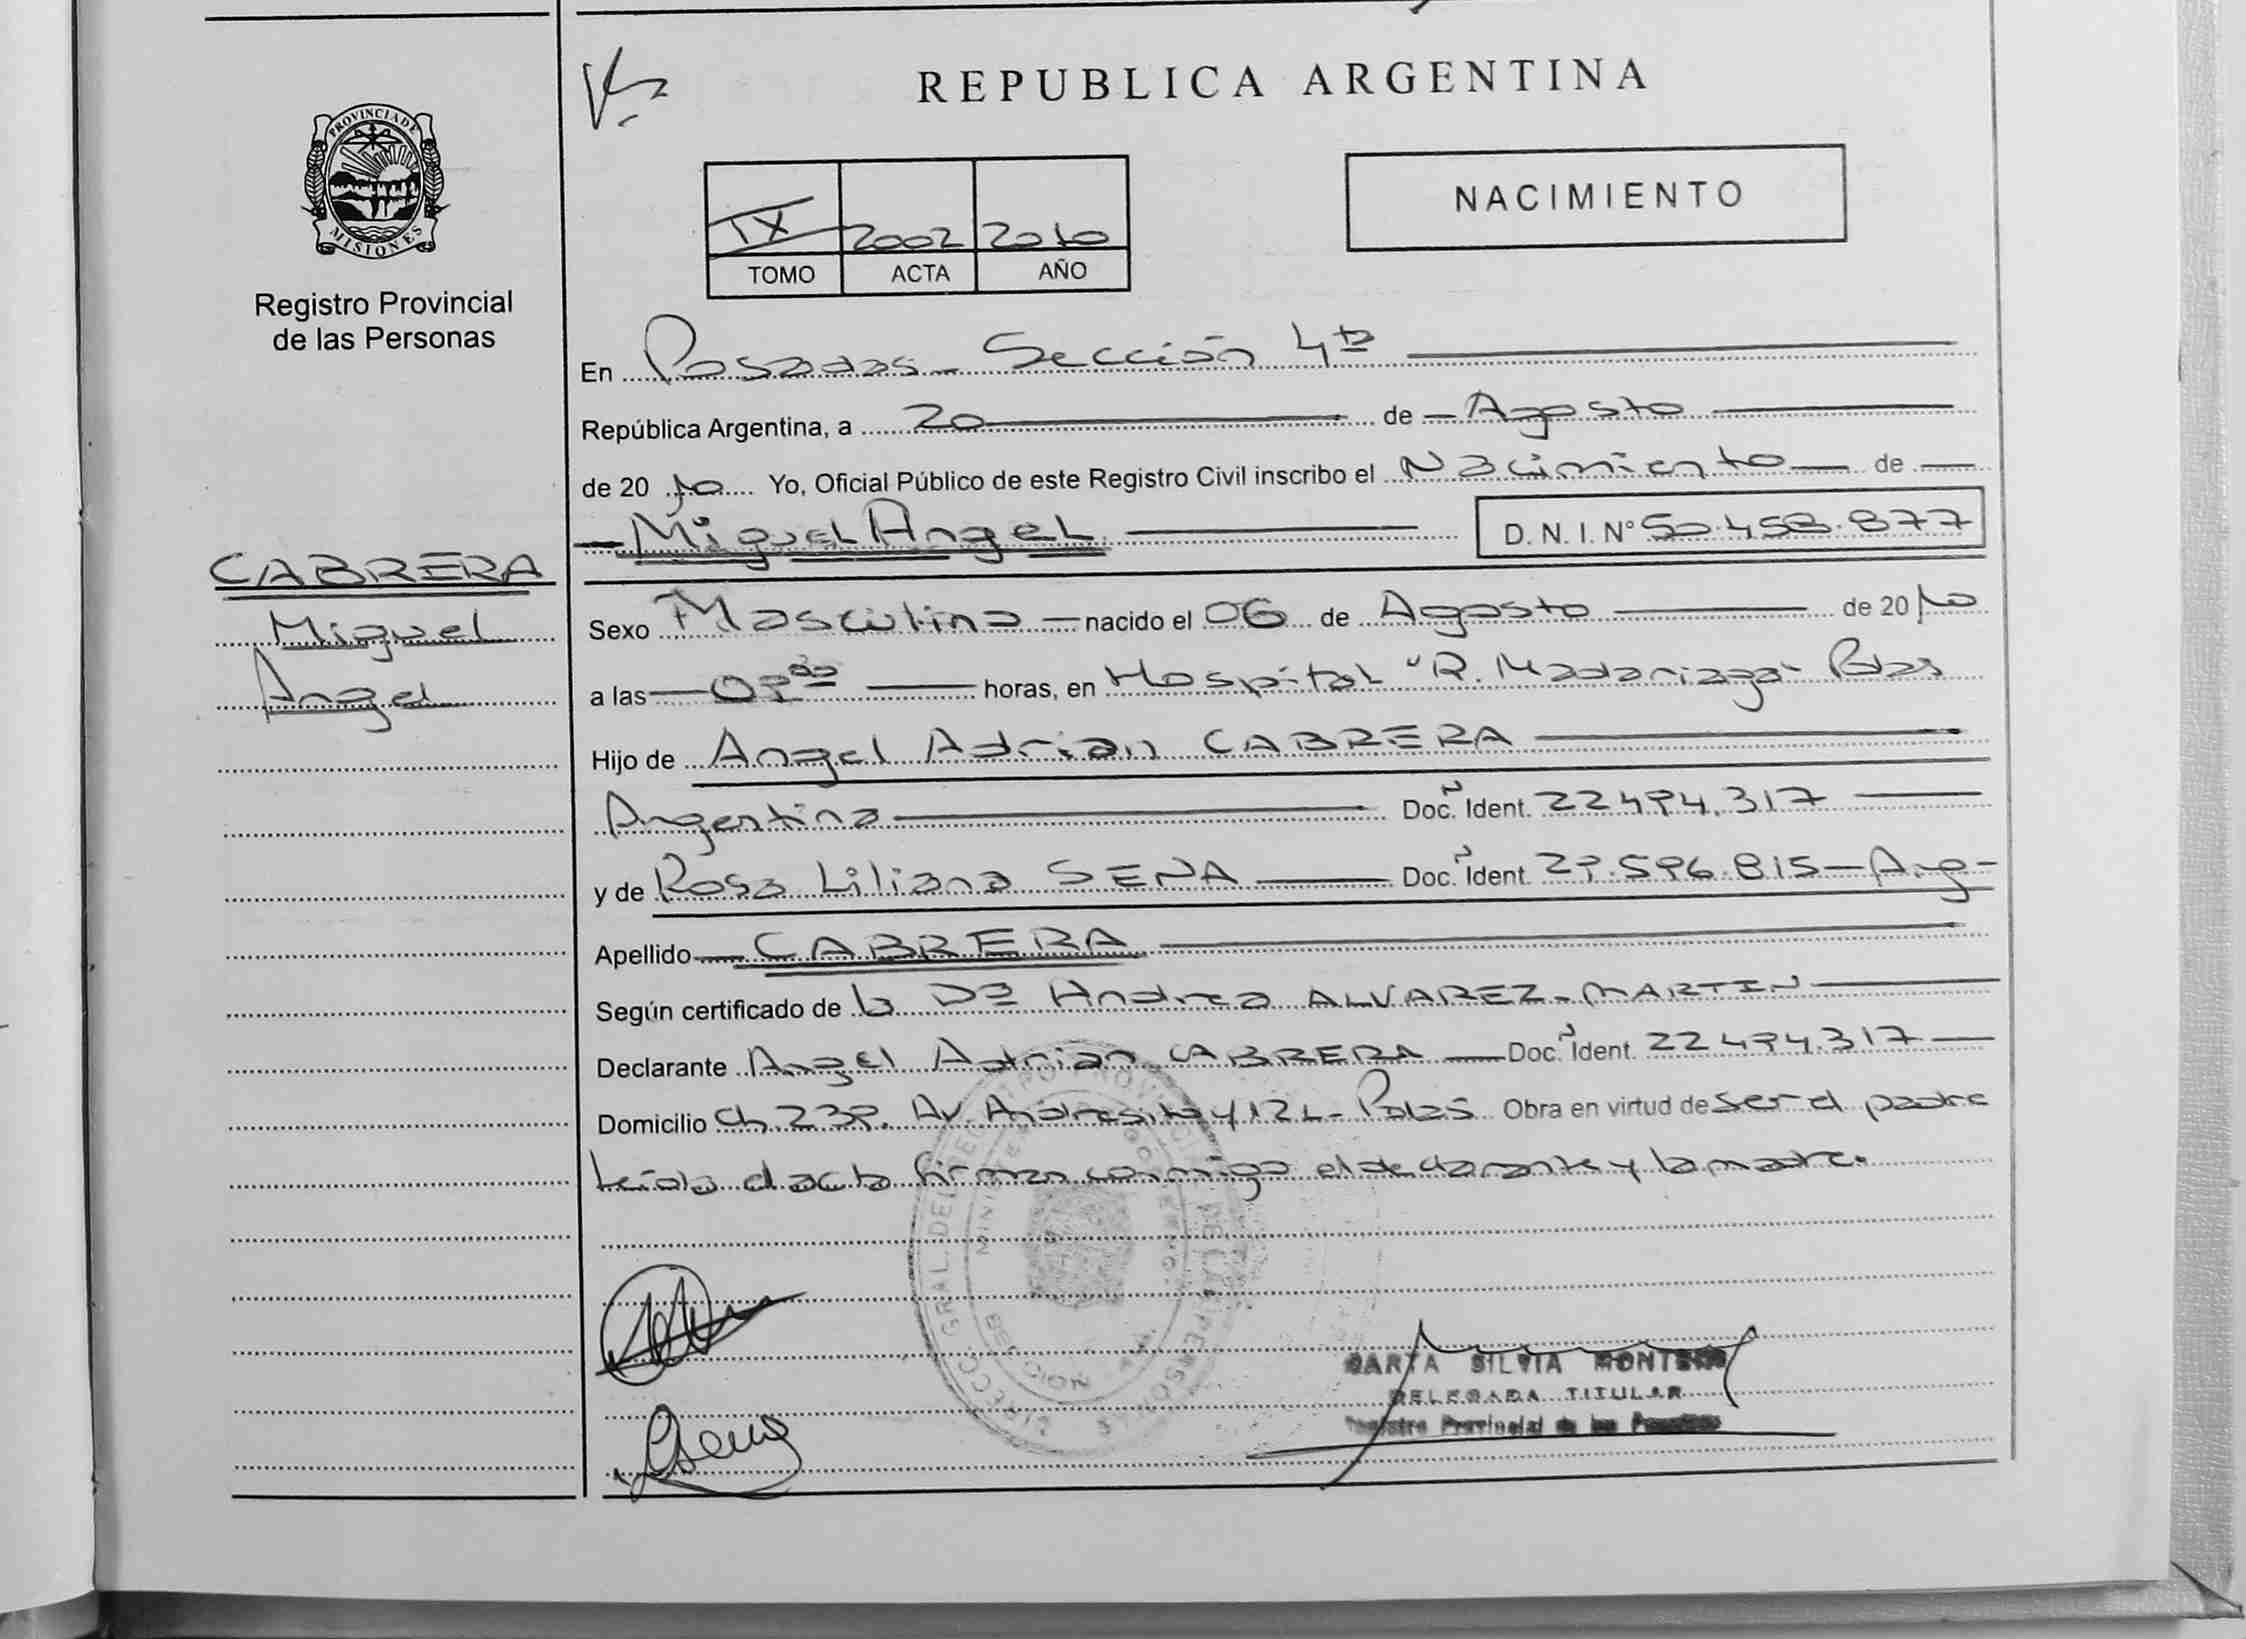 REPUBLICA ARGENTINA
PROVINCIA DE
MISIONES
Registro Provincial
de las Personas
IX 2002 2010
TOMO ACTA AÑO
NACIMIENTO
En Posadas - Sección 4ta
República Argentina, a 20 de Agosto
de 2010 Yo, Oficial Público de este Registro Civil inscribo el Nacimiento de
Miguel Angel D.N.I. Nº 50.458.877
CABRERA
Miguel
Angel
Sexo Masculino nacido el 06 de Agosto de 2010
a las horas, en Hospital "R. Madariaga" Pdas
Hijo de Angel Adrian CABRERA
Argentina Doc. Ident. 22.494.317
y de Rosa Liliana SENA Doc. Ident. 29.596.815 - Arg -
Apellido CABRERA
Según certificado de la Dra Andrea ALVAREZ - MARTIN
Declarante Angel Adrian CABRERA Doc. Ident. 22.494.317
Domicilio Ch. 239. Av. Andresito y 121 - Pdas Obra en virtud de ser el padre
Leída el acta firman conmigo el declarante y la madre.
SILVIA
DELEGADA TITULAR
Registro Provincial de las Personas